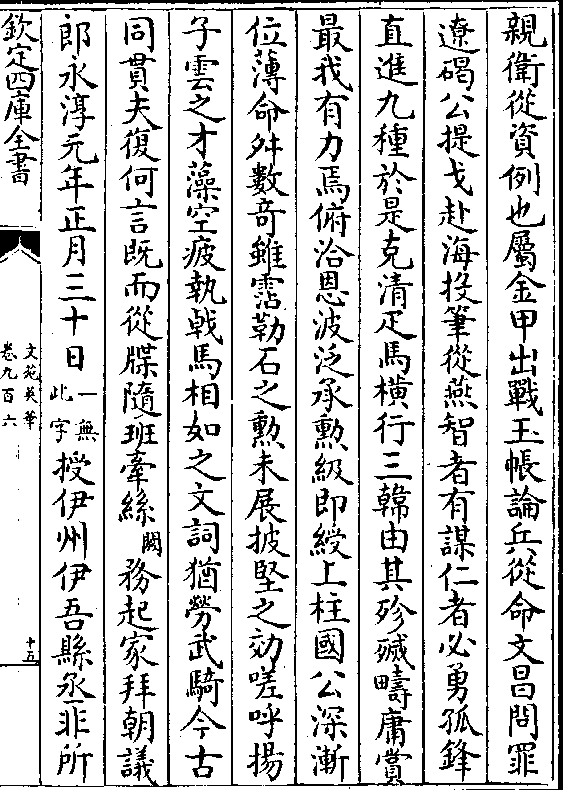 親衛從資例也屬金甲出戰玉帳論兵從命文昌問罪
遼碣公提戈赴海投筆從燕智者有謀仁者必勇孤鋒
直進九種於是克清疋馬横行三韓由其殄滅疇庸賞
最我有力焉俯洽恩波泛承勲級即綬上柱國公深漸
位薄命舛數竒雖霑勒石之勲未展披堅之効嗟呼揚
子雲之才藻空疲執戟馬相如之文詞猶勞武騎今古
同貫夫復何言既而從牒隨班牽絲闕務起家拜朝議
郎永淳元年正月三十日一無此字授伊州伊吾縣丞非所
欽定四庫全書
文苑英華
卷九百六
十五